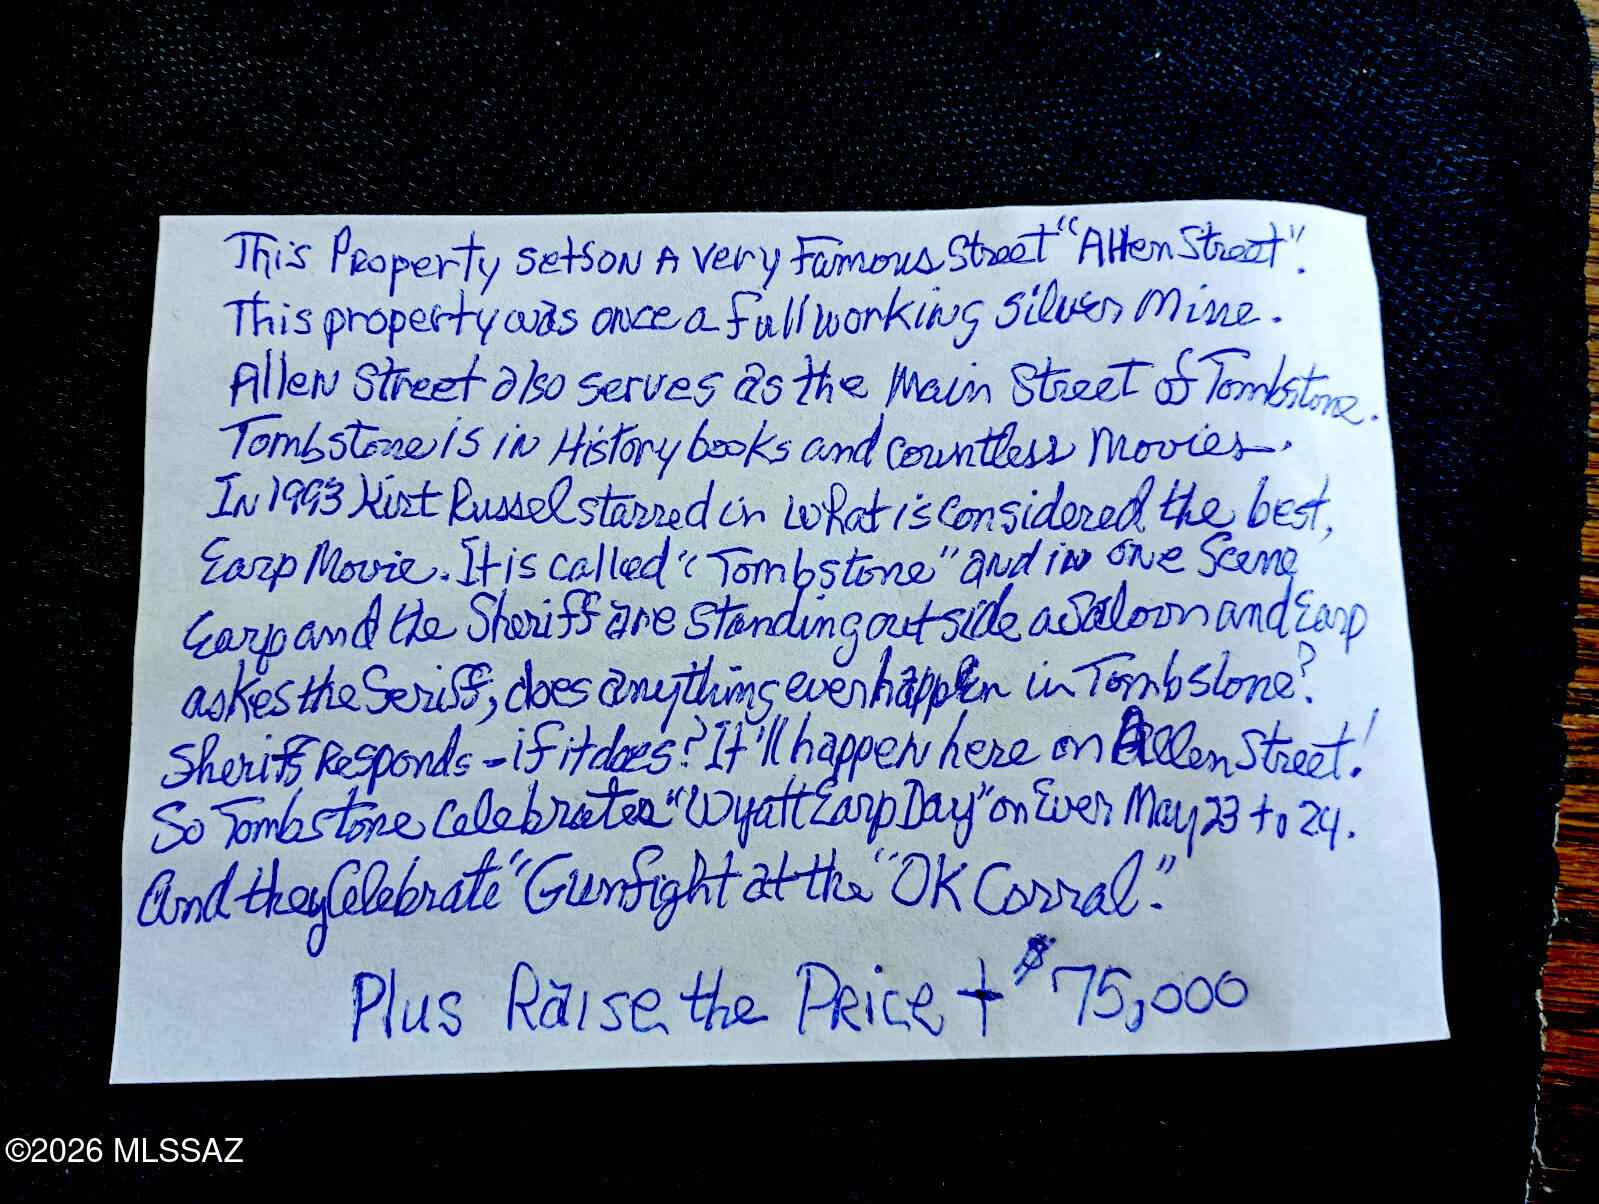 This Property setson A very Famous Street "Allen Street".
This property was once a full working silver Mine.
Allen Street also serves as the Main Street of Tombstone.
Tombstone is in History books and countless Movies.
In 1993 Kirt Russel starred in what is considered the best,
Earp Movie. It is called "Tombstone" and in one Scene
Earp and the Sheriff are standing outside a Saloon and Earp
askes the Seriff, does anything ever happen in Tombstone?
Sheriff Responds - if it does? It'll happen here on Allen Street!
So Tombstone celebrates "Wyatt Earp Day" on Ever May 23 to 24.
And they Celebrate "Gunfight at the "OK Corral."
Plus Raise the Price + $75,000
©2026 MLSSAZ